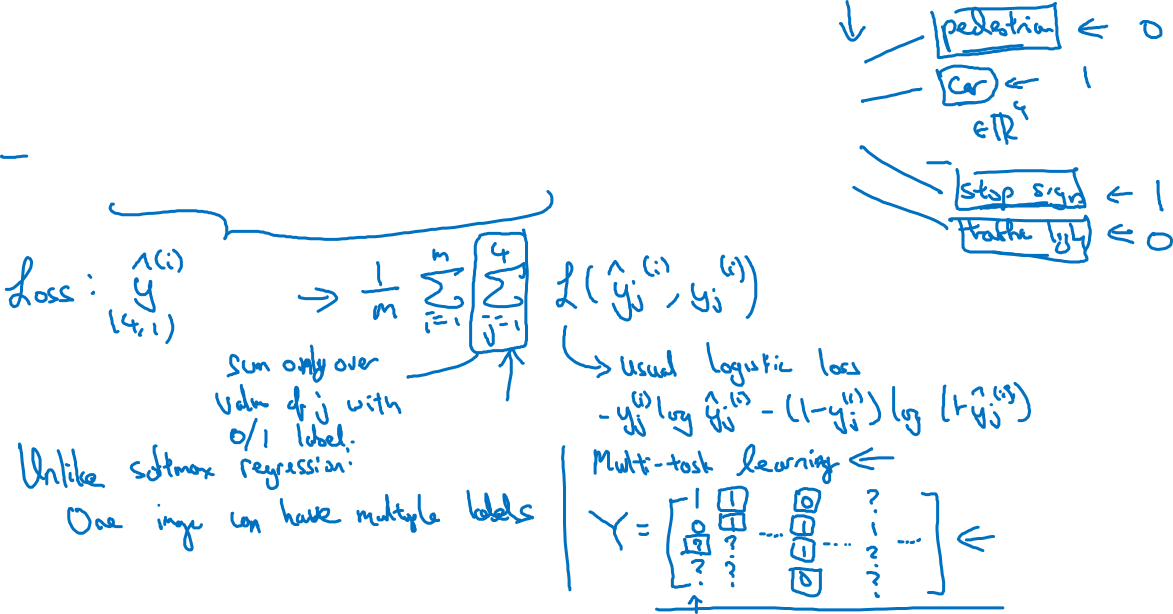 pedestrian ← 0
car ← 1
∈ ℝ⁴
stop sign ← 1
traffic light ← 0
Loss: ŷ^(i) → 1/m Σ_{i=1}^{m} Σ_{j=1}^{4} ℒ(ŷ_j^(i), y_j^(i))
(4,1)
sum only over
value of j with
0/1 label.
→ usual logistic loss
- y_j^(i) log ŷ_j^(i) - (1-y_j^(i)) log (1-ŷ_j^(i))
Unlike softmax regression:
One image can have multiple labels
Multi-task learning ←
Y = [ 1 1 0 ?
0 1 .... 1 1
? ? 1 ... ? ....
? ? 0 ? ] ←